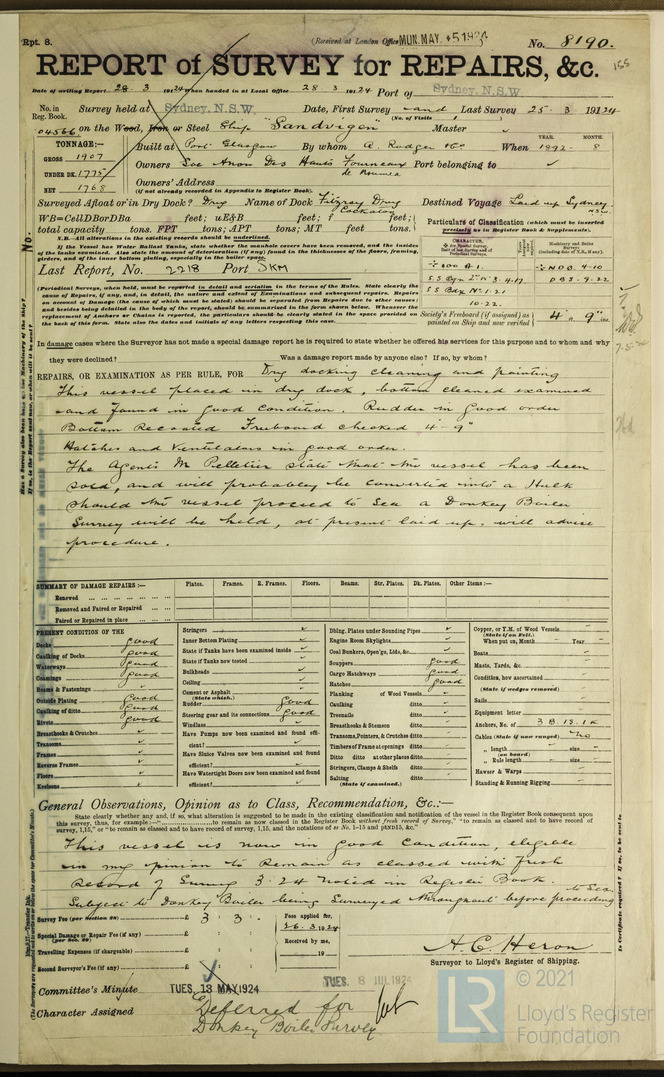 Rpt. 8.
(Received at London Office MON. MAY. 5 1924
No. 8190.
REPORT of SURVEY for REPAIRS, &c.
Date of writing Report 28 3 1924 when handed in at Local Office 28 . 3 . 1924 Port of Sydney. N.S.W.
No. in Reg. Book. Survey held at Sydney. N.S.W. Date, First Survey and Last Survey 25 . 3 1924
(No. of Visits )
04566 on the Wood, Iron or Steel Ship "Sandvigen" Master
TONNAGE:—
GROSS 1907
UNDER DK. 1775
NET 1768
Built at Port Glasgow By whom A. Rodger & Co When 1892 - 8
YEAR. MONTH.
Owners Soc Anon Des Hauts Fourneaux de Noumea Port belonging to
Owners' Address
(if not already recorded in Appendix to Register Book).
Surveyed Afloat or in Dry Dock? Drug Name of Dock Fitzroy Dry Cockatoo Destined Voyage Laid up Sydney. NSW.
WB=CellDBorDBa feet; uE&B feet; f feet;
total capacity tons. FPT tons; APT tons; MT feet tons.
N.B.—All alterations in the existing records should be underlined.
If the Vessel has Water Ballast Tanks, state whether the manhole covers have been removed, and the insides of the tanks examined. Also state the amount of deterioration (if any) found in the thicknesses of the floors, framing, girders, and of the inner bottom plating, especially in the boiler space.
Last Report, No. 2218 Port SKM
Particulars of Classification (which must be inserted precisely as in Register Book & Supplements).
CHARACTER.
Machinery and Boiler Surveys (including date of N.B., if any).
100 A 1. NDB. 4-10
3.4.17 DBS. 9.22
No 1.21
10.22.
Society's Freeboard (if assigned) as painted on Ship and now verified 4 ft 9" ins.
(Periodical Surveys, when held, must be reported in detail and seriatim in the terms of the Rules. State clearly the cause of Repairs, if any, and, in detail, the nature and extent of Examinations and subsequent repairs. Repairs on account of Damage (the cause of which must be stated) should be separated from Repairs due to other causes; and besides being detailed in the body of the report, should be summarised in the form shown below. Whenever the replacement of Anchors or Chains is reported, the particulars should be clearly stated in the space provided on the back of this form. State also the dates and initials of any letters respecting this case.
In damage cases where the Surveyor has not made a special damage report he is required to state whether he offered his services for this purpose and to whom and why they were declined? Was a damage report made by anyone else? If so, by whom?
REPAIRS, OR EXAMINATION AS PER RULE, FOR Dry docking cleaning and painting
This vessel placed in dry dock, bottom cleaned examined
and found in good condition. Rudder in good order
Bottom Recoated Freeboard checked 4'-9"
Hatches and Ventilators in good order.
The Agents Mr Pelletier state that the vessel has been
sold, and will probably be converted into a Hulk
Should the vessel proceed to Sea a Donkey Boiler
Survey will be held, at present laid up. will advise
procedure.
SUMMARY OF DAMAGE REPAIRS:— Plates. Frames. R. Frames. Floors. Beams. Str. Plates. Dk. Plates. Other Items:—
Renewed
Removed and Faired or Repaired
Faired or Repaired in place
PRESENT CONDITION OF THE
Decks good
Caulking of Decks good
Waterways good
Coamings good
Beams & Fastenings
Outside Plating good
Caulking of ditto good
Rivets good
Breasthooks & Crutches
Transoms
Frames
Reverse Frames
Floors
Keelsons
Stringers
Inner Bottom Plating
State if Tanks have been examined inside
State if Tanks now tested
Bulkheads
Ceiling
Cement or Asphalt (State which.)
Rudder Good
Steering gear and its connections Good
Windlass
Have Pumps now been examined and found efficient?
Have Sluice Valves now been examined and found efficient?
Have Watertight Doors now been examined and found efficient?
Dblng. Plates under Sounding Pipes
Engine Room Skylights
Coal Bunkers, Open'gs, Lids, &c.
Scuppers good
Cargo Hatchways good
Hatches good
Planking of Wood Vessels
Caulking ditto
Treenails ditto
Breasthooks & Stemson ditto
Transoms, Pointers, & Crutches ditto
Timbers of Frame at openings ditto
Ditto ditto at other places ditto
Stringers, Clamps & Shelfs ditto
Salting (State if examined.) ditto
Copper, or Y.M. of Wood Vessels
(State if on Felt.)
When put on, Month Year
Boats
Masts, Yards, &c.
Condition, how ascertained
(State if wedges removed)
Sails
Equipment letter
Anchors, No. of 3 B. 1S. 1K
Cables (State if now ranged) No
" length size
(on board)
" Rule length size
Hawser & Warps
Standing & Running Rigging
General Observations, Opinion as to Class, Recommendation, &c.:—
State clearly whether any and, if so, what alteration is suggested to be made in the existing classification and notification of the vessel in the Register Book consequent upon this survey, thus, for example:—"..............to remain as now classed in the Register Book without fresh record of Survey," "to remain as classed and to have record of survey, 1,15," or "to remain as classed and to have record of survey, 1,15, and the notations of ss No. 1-15 and ptND15, &c."
This vessel is now in good condition, eligible
in my opinion to Remain as classed with fresh
Record of Survey 3.24 noted in Register Book
Subject to Donkey Boiler being Surveyed throughout before proceeding to Sea.
Survey Fee (per Section 29) £ 3 : 3 :
Special Damage or Repair Fee (if any) (per Sec. 29) £ : :
Travelling Expenses (if chargeable) £ : :
Second Surveyor's Fee (if any) £ : :
Fees applied for, 26.3.1924
Received by me, 19
A. C. Heron
Surveyor to Lloyd's Register of Shipping.
Committee's Minute TUES. 13 MAY 1924
TUES. 8 JUL 1924
Character Assigned Deferred for
Donkey Boiler Survey
© 2021
LR
Lloyd's Register
Foundation